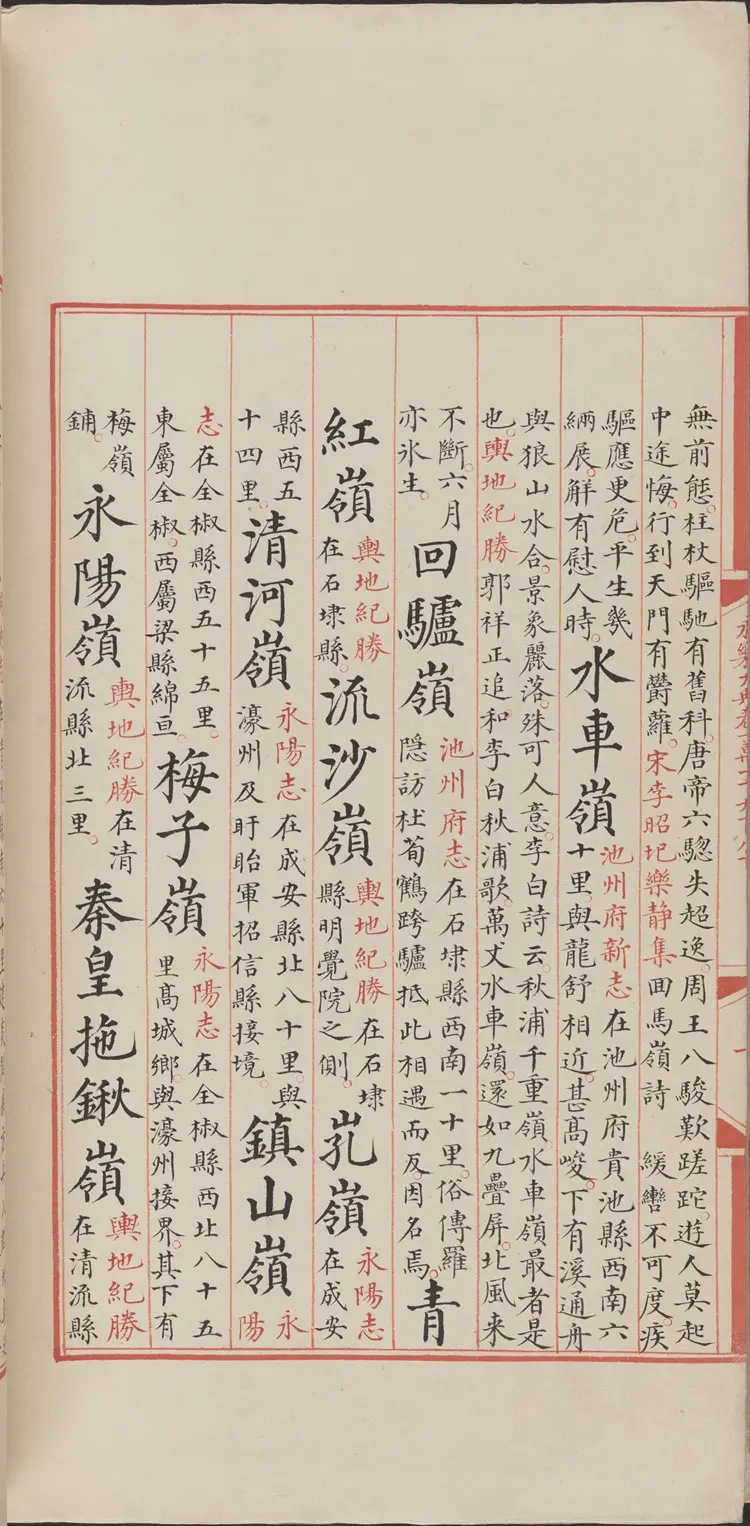 無前態。柱杖驅馳有舊科。唐帝六驄失超逸。周王八駿歎蹉跎。遊人莫起
中途悔。行到天門有欝蘿。宋李昭玘樂静集回馬嶺詩 緩轡不可度。疾
驅應更危。平生幾
緉展。觧有慰人時。
水車嶺
池州府新志在池州府貴池縣西南六
十里。與龍舒相近。甚髙峻。下有溪通舟
與狼山水合。景象麗落。殊可人意。李白詩云。秋浦千重嶺水車嶺最者是
也。輿地紀勝郭祥正追和李白秋浦歌。萬丈水車嶺。還如九疊屏。北風来
不斷。六月
亦氷生。
回驢嶺
池州府志在石埭縣西南一十里。俗傳羅
隠訪杜荀鶴跨驢抵此相遇而反。因名焉。
青
紅嶺
輿地紀勝
在石埭縣。
流沙嶺
輿地紀勝在石埭
縣明覺院之側。
嶺
永陽志
在成安
縣西五
十四里。
清河嶺
永陽志在成安縣北八十里。與
濠州及盱眙軍招信縣接境。
鎮山嶺
永
陽
志在全椒縣西五十五里。
東屬全椒。西屬梁縣綿亘。
梅子嶺
永陽志在全椒縣西北八十五
里髙城鄉。與濠州接界。其下有
梅嶺
鋪。
永陽嶺
輿地紀勝在清
流縣北三里。
秦皇拖鍬嶺
輿地紀勝
在清流縣